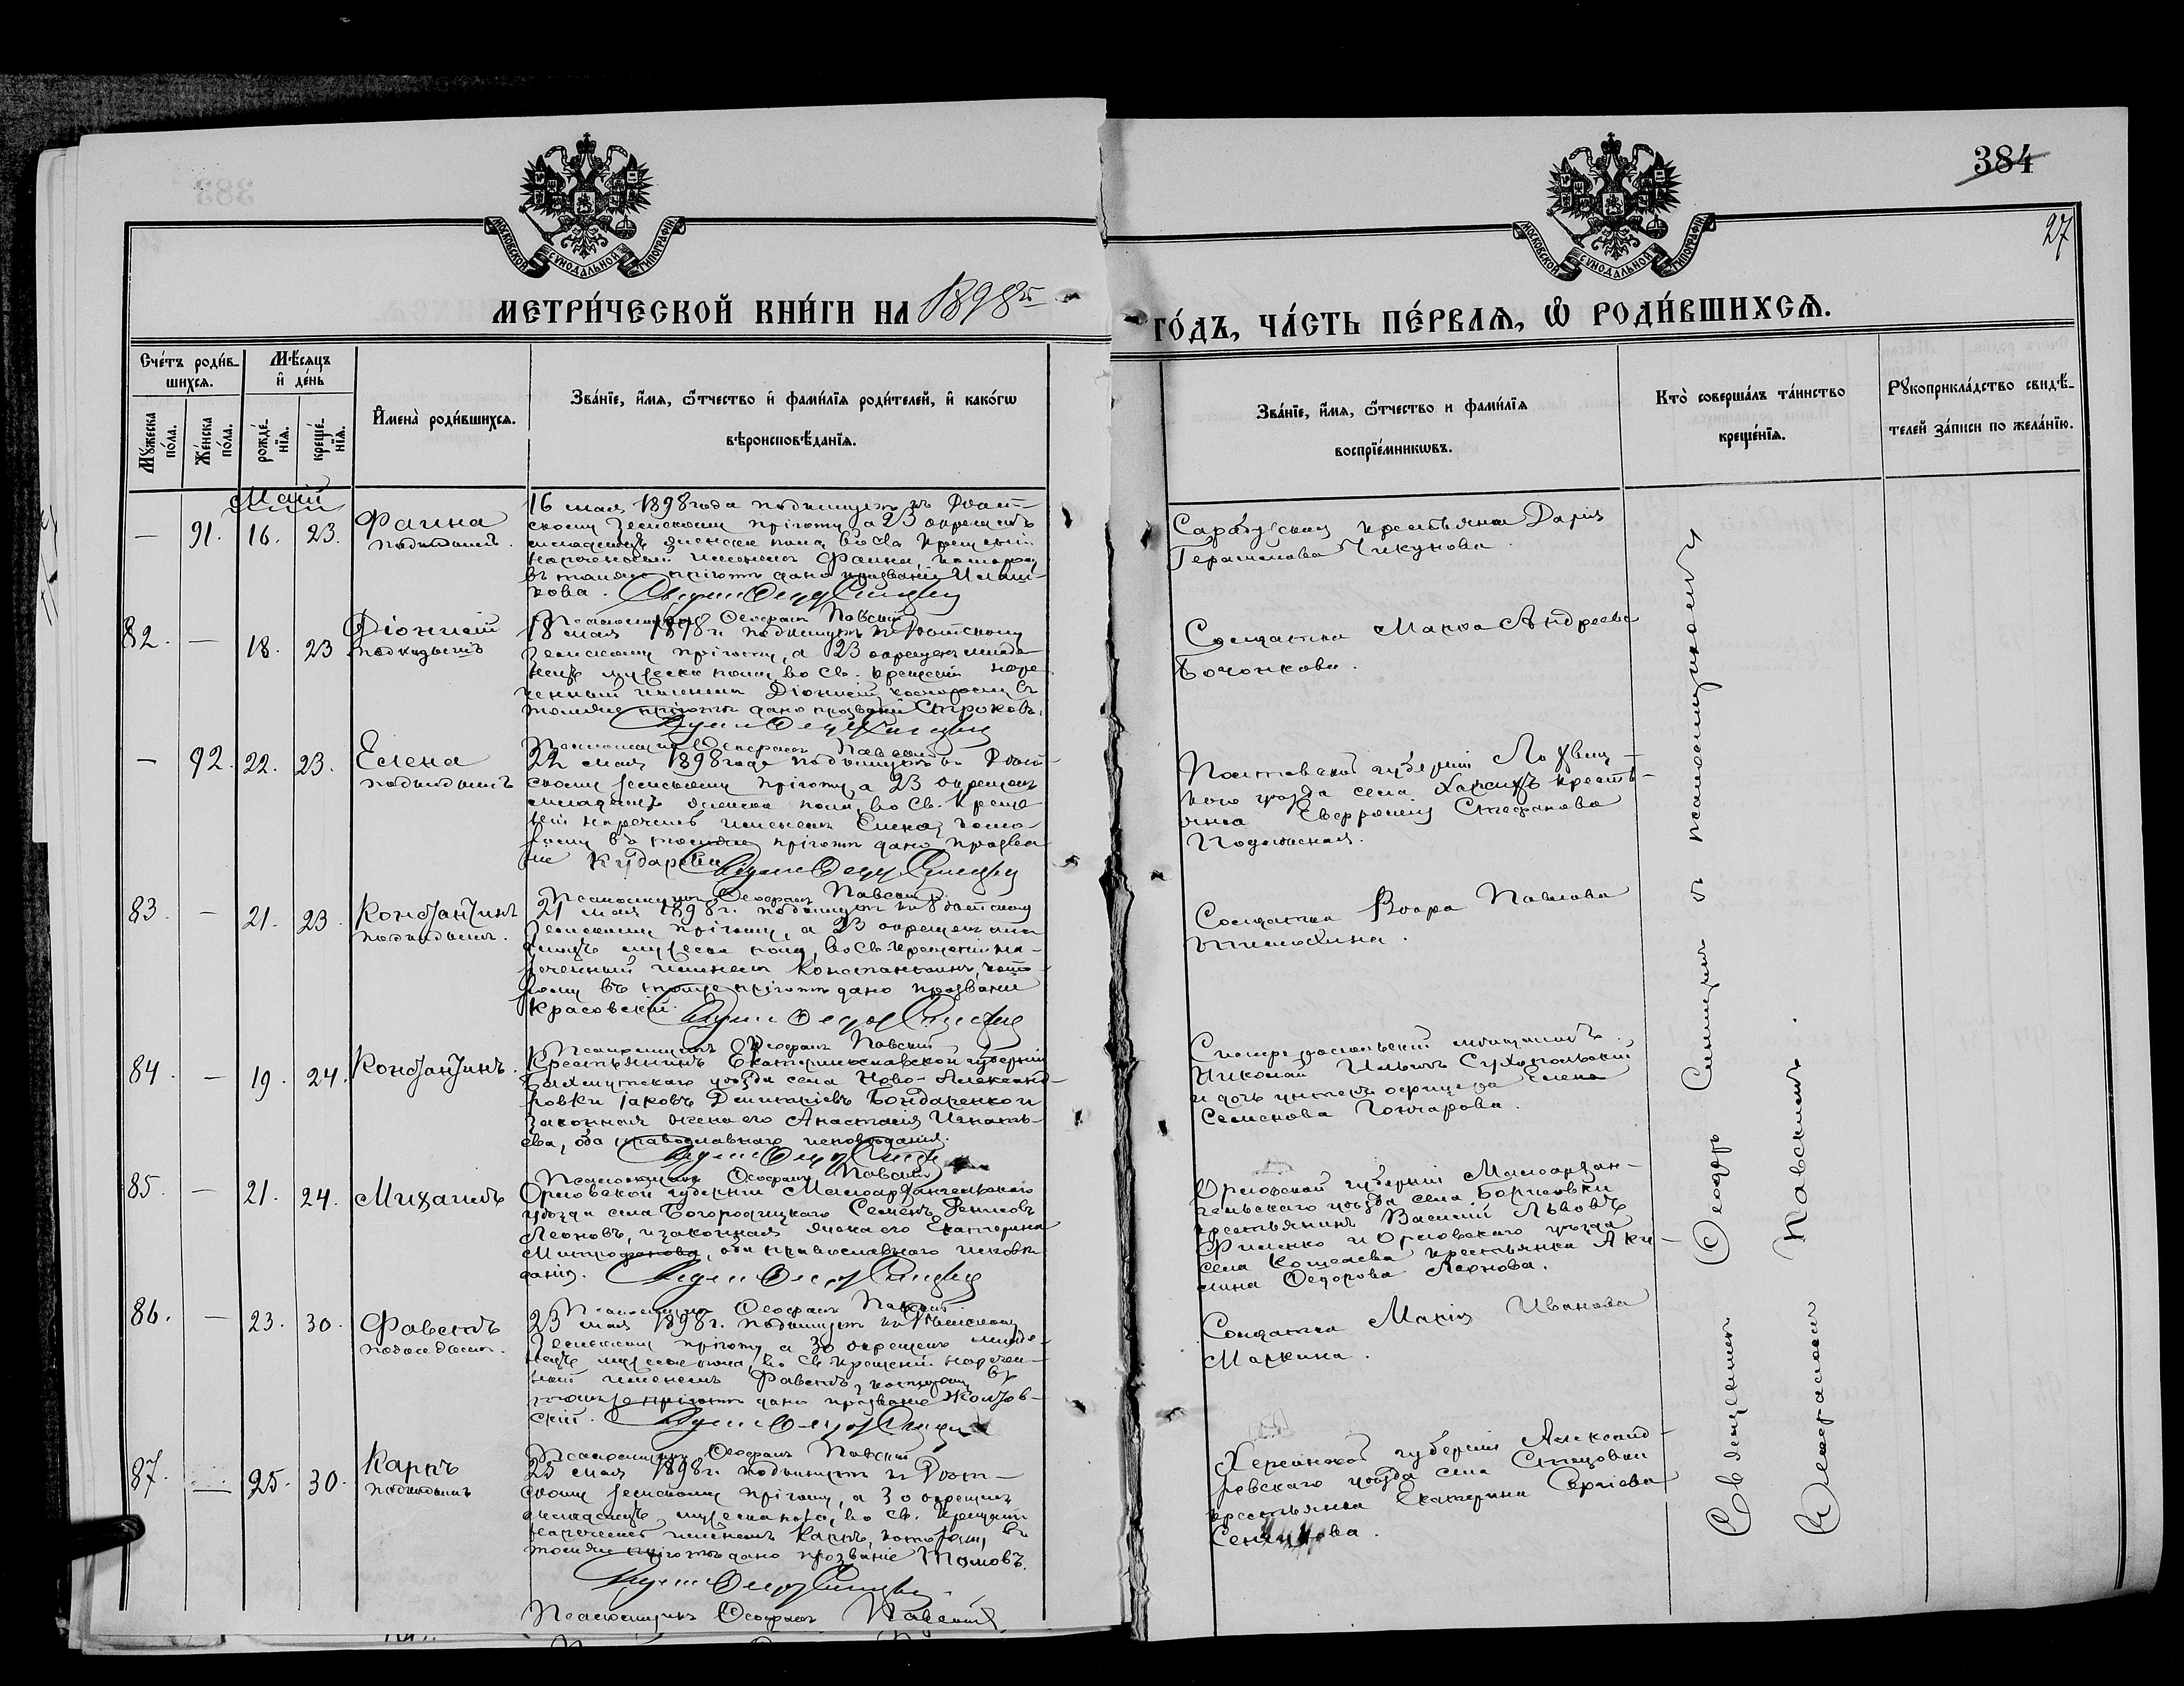 384
27
МОСКОВСКОЙ СѴНОДАЛЬНОЙ ТИПОГРАФІИ
МОСКОВСКОЙ СѴНОДАЛЬНОЙ ТИПОГРАФІИ
МЕТРИ́ЧЕСКОЙ КНИ́ГИ НА 1898й
ГО́ДЪ, ЧА́СТЬ ПЕ́РВАЯ, Ѡ РОДИ́ВШИХСЯ.
Сче́тъ роди́в-
шихся.
Мѣ́сяцъ
и҆ де́нь
Мꙋ́жеска по́ла.
Же́нска по́ла.
рожде́нїя.
креще́нїя.
И҆мена̀ роди́вшихся.
Зва́нїе, и҆́мя, ѻ҆́тчество и҆ фами́лїя роди́телей, и҆ како́гѡ
вѣроисповѣ́данїя.
Зва́нїе, и҆́мя, ѻ҆́тчество и фами́лїя
воспрїе́мникѡвъ.
Кто̀ соверша́лъ та́инство
креще́нїя.
Рꙋкоприкла́дство свидѣ́-
телей за́писи по жела́нїю.
Май
— 91. 16. 23. Фаина
подкидышъ.
16 мая 1898 года подкинутъ въ
скому Земскому пріюту, а 23 окрещенъ
младенецъ женска пола, во св. крещеніи
нареченный именемъ Фаина, которой
въ томъ же пріютѣ дано прозваніе
кова.
Псаломщикъ Ѳеофанъ Павскій
крестьянка Дарія
Герасимова Чикунова
82. — 18. 23 Діонисій
подкидышъ
18 мая 1898 г. подкинутъ къ
Земскому пріюту, а 23 окрещенъ младе-
нецъ мужеска пола, во св. крещеніи наре-
ченный именемъ Діонисій, которому въ
томъ же пріютѣ дано прозваніе Строковъ.
Псаломщикъ Ѳеофанъ Павскій
Солдатка Марѳа Андреева
Бочонкова.
— 92. 22. 23. Елена
подкидышъ
22 мая 1898 года подкинутъ въ
скому земскому пріюту, а 23 окрещенъ
младенецъ женска пола, во св. креще-
ніи нареченъ именемъ Елена, кото-
рому въ томъ же пріютѣ дано прозва-
ніе
Псаломщикъ Ѳеофанъ Павскій
Полтавской губерніи Лохвиц-
кого уѣзда села кресть-
янка Евфросинія Стефанова
83. — 21. 23. Константинъ
подкидышъ.
21 мая 1898 г. подкинутъ къ
Земскому пріюту, а 23 окрещенъ мла-
денецъ мужеска пола, во св. крещеніи на-
реченный именемъ Константинъ, кото-
рому въ томъ же пріютѣ дано прозваніе
Красовскій.
Псаломщикъ Ѳеофанъ Павскій
Солдатка Павлова
84. — 19. 24. Константинъ.
Крестьянинъ Екатеринославской губерніи
Бахмутскаго уѣзда села Ново-Александ-
ровки Іаковъ Димитріевъ Бондаренко и
законная жена его Анастасія Игнать-
ева, оба православнаго исповѣданія.
Псаломщикъ Ѳеофанъ Павскій
мѣщанинъ
Николай Ильинъ
и дочь офицера Елена
Семенова Гончарова.
85. — 21. 24. Михаилъ
Орловской губерніи Малоархангельскаго
уѣзда села Богородицкаго Семенъ Денисовъ
Леоновъ, и законная жена его Екатерина
Митрофанова, оба православнаго исповѣ-
данія.
Псаломщикъ Ѳеофанъ Павскій
Орловской губерніи Малоархан-
гельскаго уѣзда села Борисовки
крестьянинъ Василій Львовъ
Филенко и Орловскаго уѣзда
села Кошелева крестьянка Аки-
лина Ѳедорова Леонова.
86. — 23. 30. Фавстъ
подкидышъ.
23 мая 1898 г. подкинутъ къ
Земскому пріюту, а 30 окрещенъ младе-
нецъ мужеска пола, во св. крещеніи наречен-
ный именемъ Фавстъ, которому въ
томъ же пріютѣ дано прозваніе
скій.
Псаломщикъ Ѳеофанъ Павскій
Солдатка Марія Иванова
Маркина.
87. — 25. 30. Карпъ
подкидышъ
25 мая 1898 г. подкинутъ къ
скому земскому пріюту, а 30 окрещенъ
младенецъ мужеска пола, во св. крещеніи
нареченъ именемъ Карпъ, которому въ
томъ же пріютѣ дано прозваніе
Псаломщикъ Ѳеофанъ Павскій
Херсонской губерніи Александ-
ровскаго уѣзда села
крестьянка Екатерина Сергіева
Священникъ Ѳеодоръ Синицинъ съ псаломщикомъ
Ѳеофаномъ Павскимъ.